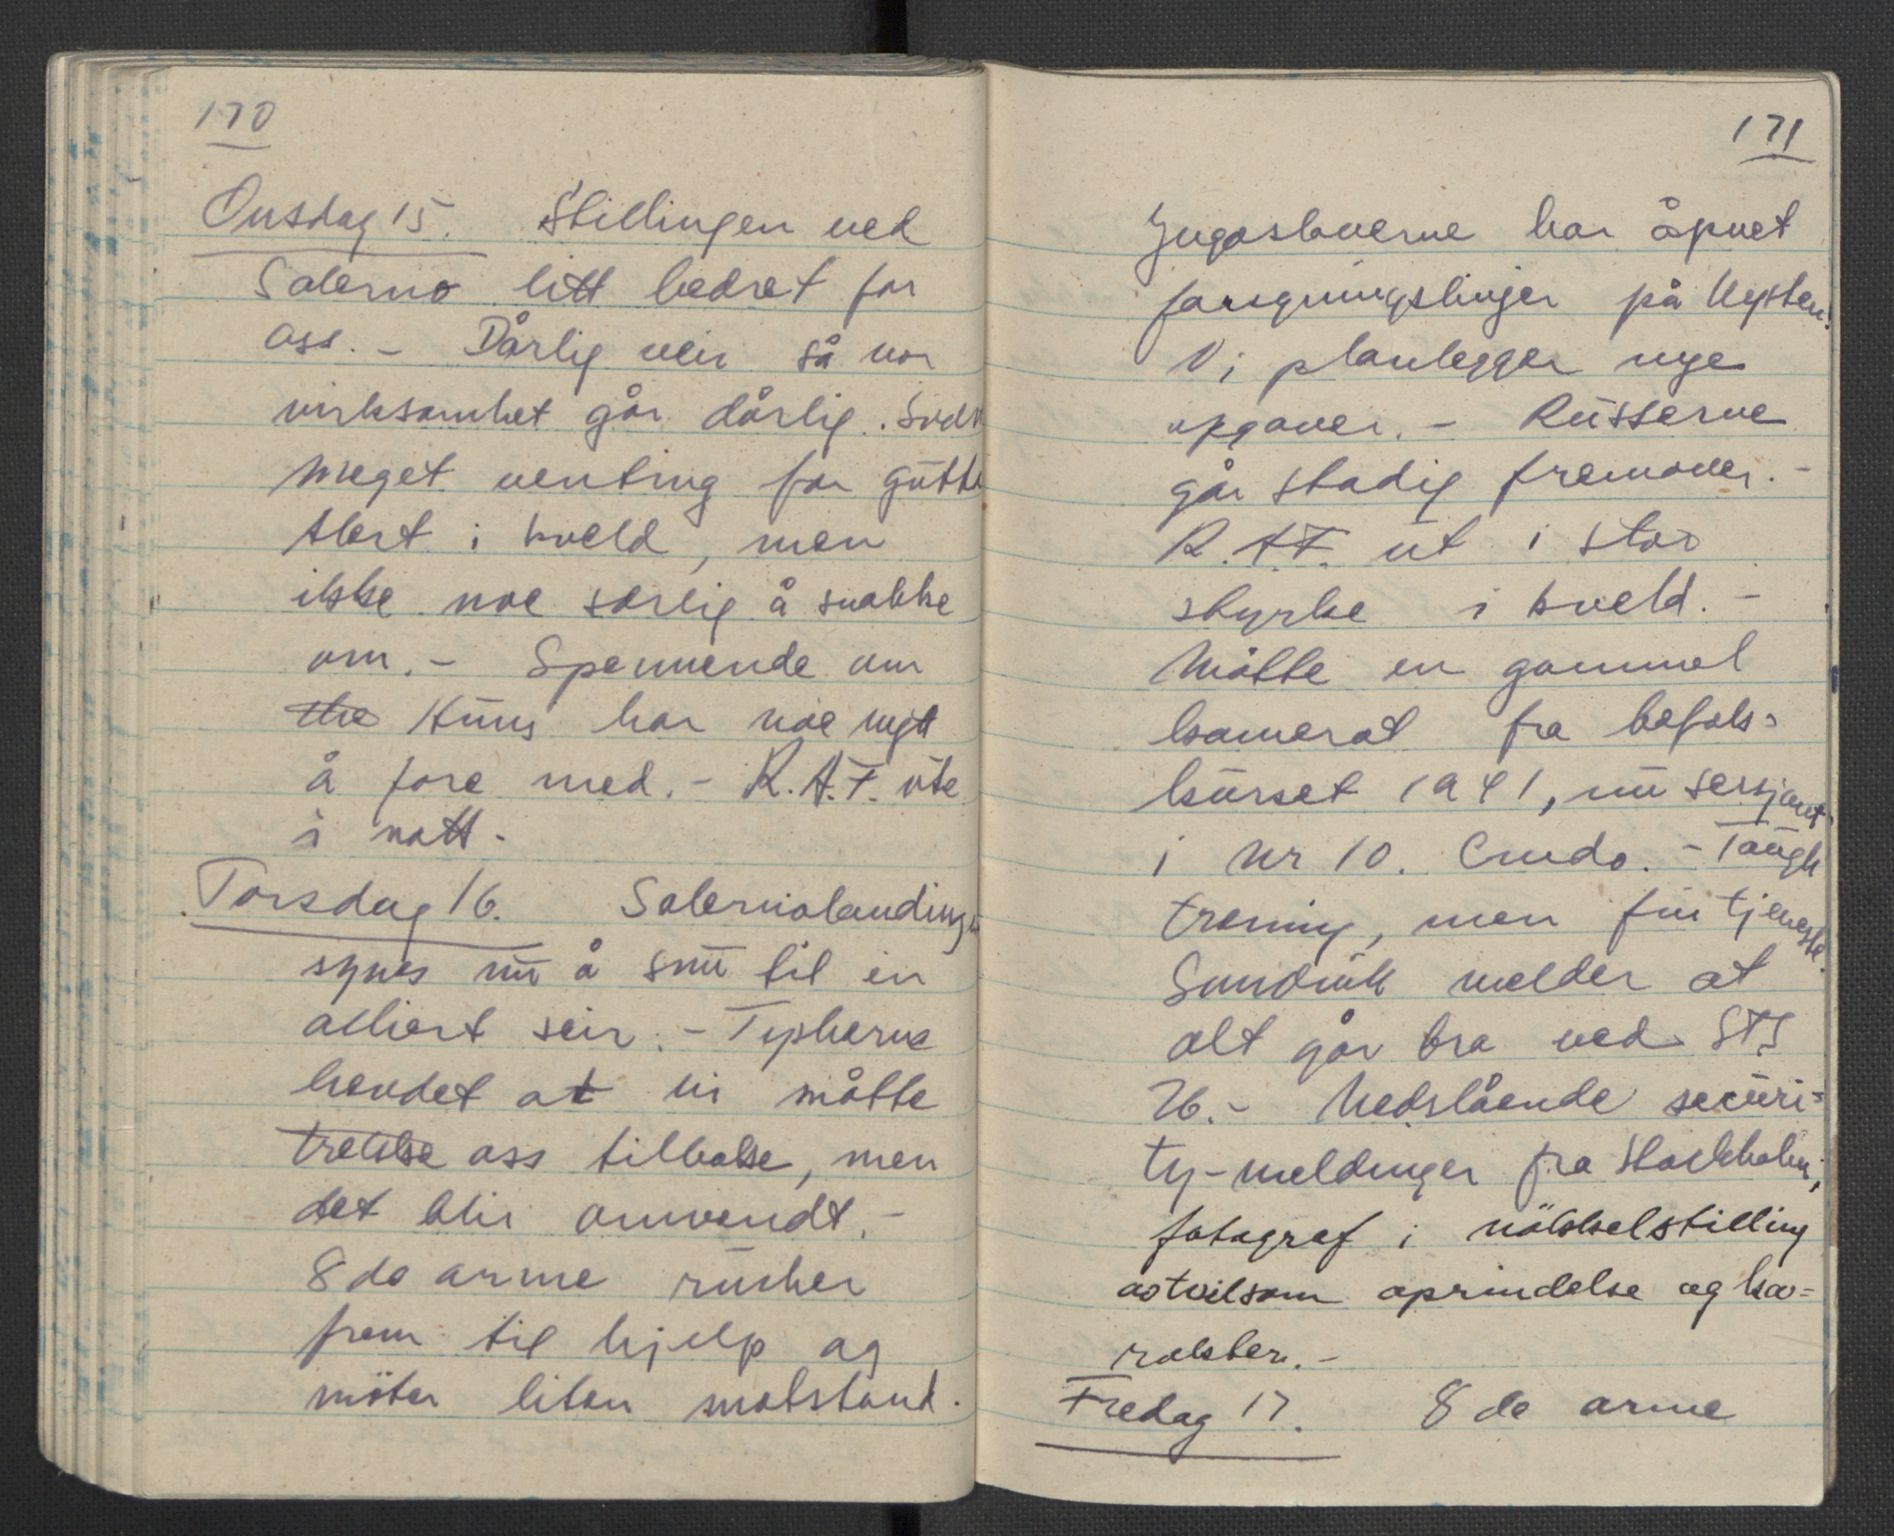 170
Onsdag 15. Stillingen ved
Salerno litt bedret for
oss. - Dårlig veir så vor
virksomhet går dårlig.
Meget venting for
Alert i kveld, men
ikke noe særlig å snakke
om. - Spennende om
the Huns har noe nytt
å fare med. - R.A.F. ute
i natt.
Torsdag 16. Salernolandingen
synes nu å snu til en
alliert seir. - Tyskerne
hevdet at vi måtte
trekke oss tilbake, men
det blir omvendt. -
8de arme rusher
frem til hjelp og
möter liten motstand.
171
Jugoslaverne har åpnet
forsyningslinjer på kysten.
Vi planlegger nye
opgaver. - Russerne
går stadig fremover. -
R.A.F. ut i stor
styrke i kveld. -
Måtte en gammel
kamerat fra befals=
kurset 1941, nu sersjant
i Nr 10. Cmdo. - Tough
trening, men fin tjeneste.
Sundvik melder at
alt går bra ved STS
26. - Nedslående securi=
ty-meldinger fra Stockholm;
fotograf i nökkelstilling
av tvilsom oprindelse og ka=
rakter. -
Fredag 17. 8de arme